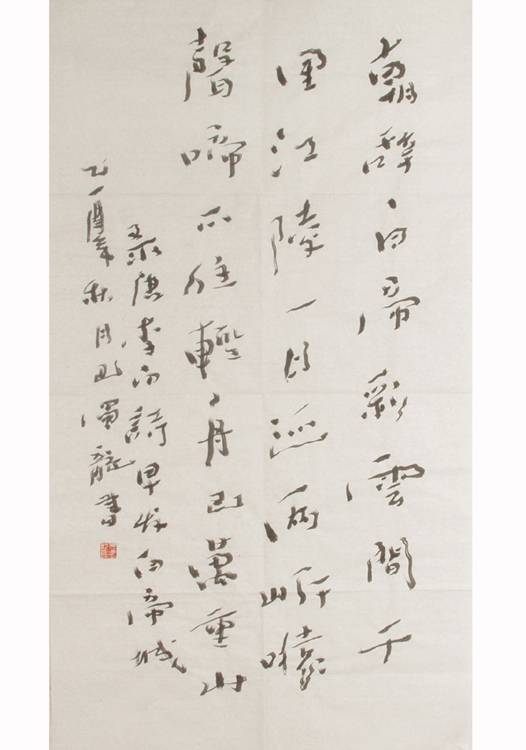 朝辭白帝彩雲間千
里江陵一日還兩岸猿
聲啼不住輕舟已過萬重山
录唐李白詩早發白帝城
乙酉年秋月龍書